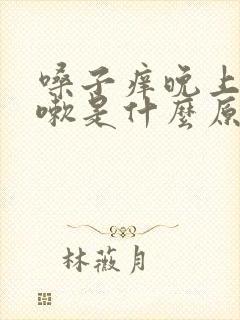 嗓子痒晚上
嗽是什麼原
林薇月